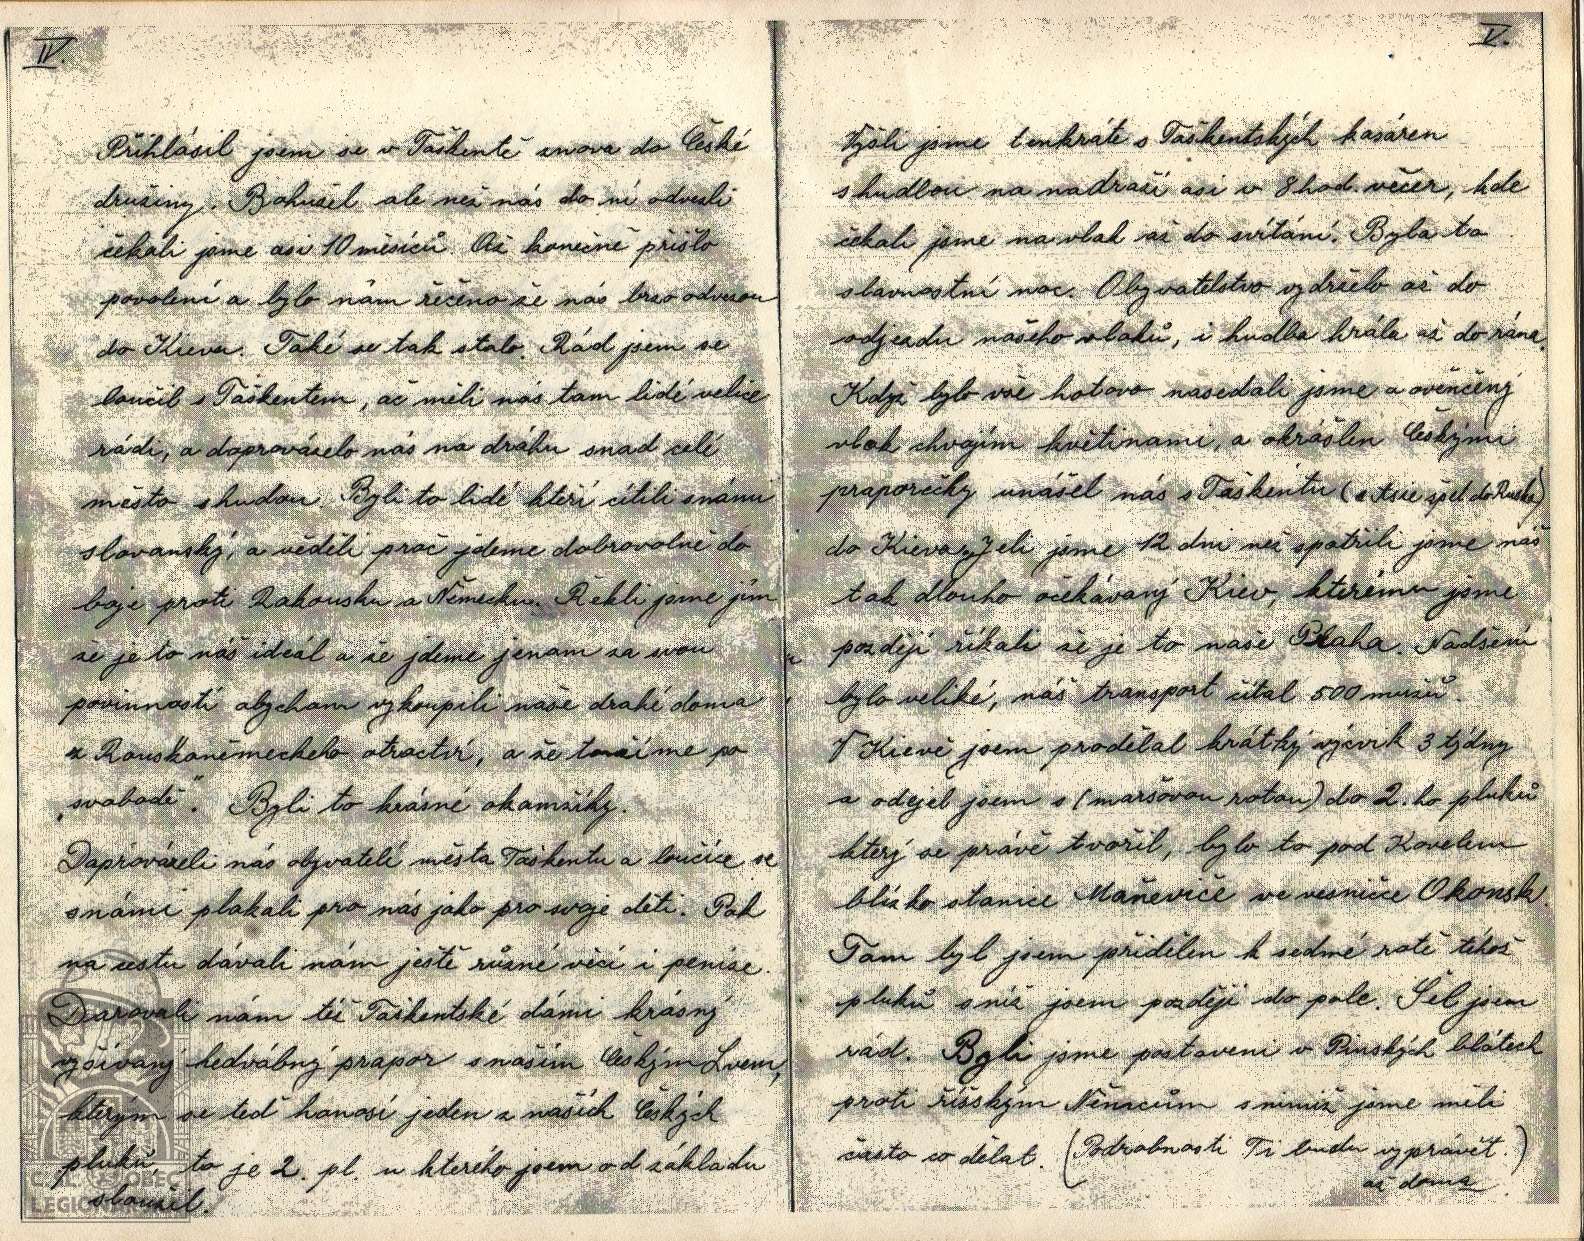 IV.
Přihlásil jsem se v Taškentě znova do České
družiny. Bohužel ale než nás do ní odvezli
čekali jsme asi 10 měsíců. Až konečně přišlo
povolení a bylo nám řečeno že nás brzo odvezou
do Kieva. Také se tak stalo. Rád jsem se
loučil s Taškentem, ač měli nás tam lidé velice
rádi, a doprovázelo nás na dráhu snad celé
město s hudbou. Byli to lidé kteří cítili snámi
slovanský, a věděli proč jdeme dobrovolně do
boje proti Rakousku a Německu. Řekli jsme jím
že je to náš ideál a že jdeme jenom za svou
povinností abychom vykoupili naše drahé doma
z Rouskoněmeckeho otroctví, a že toužíme po
„svobodě". Byli to krásné okamžiky.
Doprovázeli nás obyvatelé města Taškentu a loučíce se
snámi plakali pro nás jako pro svoje děti. Pak
na cestu dávali nám ještě různé věci i peníze.
Darovali nám též Taškentské dámi krásný
vyšívaný hedvábný prapor s naším Českým Lvem,
kterým se teď honosí jeden z naších Českých
pluků, to je 2. pl. u kterého jsem od základu
sloužil.
V.
Vyšli jsme tenkráte s Taškentských kasáren
s hudbou na nadraží asi v 8 hod. večer, kde
čekali jsme na vlak až do svítání. Byla to
slavnostní noc. Obyvatelstvo vydrželo až do
odjezdu našeho vlaků, i hudba hrála až do rána.
Když bylo vše hotovo nasedali jsme a ověnčený
vlak chvojím květinami, a okrášlen Českými
praporečky unášel nás s Taškéntu (z Asie zpět do Ruska)
do Kieva. Jeli jsme 12 dni než spatřili jsme náš
tak dlouho očekávaný Kiev, kterému jsme
později říkali že je to naše Praha. Nadšení
bylo veliké, náš transport čítal 500 mužů.
V Kievě jsem prodělal krátký výcvik 3 týdny
a odejel jsem s (maršovou rotou) do 2. ho pluků
který se právě tvořil, bylo to pod Kovelem
blízko stanice Maněviče ve vesničce Okonsk.
Tam byl jsem přidělen k sedmé rotě téhož
pluků sníž jsem později do pole. Šel jsem
rád. Byli jsme postaveni v Pinských blátech
proti říšským Němcům s nimiž jsme měli
často co dělat. (Podrobnosti Ti budu vyprávět.)
až doma